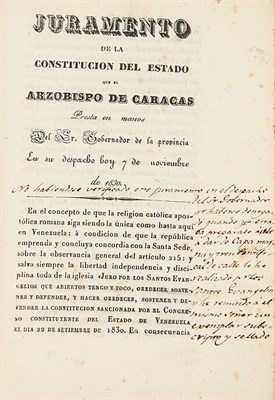 JURAMENTO
DE LA
CONSTITUCION DEL ESTADO
QUE EL
ARZOBISPO DE CARACAS
Presta en manos
Del Sr. Gobernador de la provincia
En su despacho hoy 7 de noviembre
de 1830.
No habiendose verificado este juramento en el despacho
del Sr Gobernador
En el concepto de que la religion católica após-
tólica romana siga siendo la única como hasta aquí
en Venezuela: á condicion de que la república
emprenda y concluya concordia con la Santa Sede,
sobre la observancia general del artículo 215: y
salva siempre la libertad independencia y disci-
plina toda de la iglesia «JURO POR LOS SANTOS EVAN-
GELIOS QUE ABIERTOS TENGO Y TOCO, OBEDECER, SOSTE-
NER Y DEFENDER, Y HACER OBEDECER, SOSTENER Y DE-
FENDER LA CONSTITUCION SANCIONADA POR EL CONGRE-
SO CONSTITUYENTE DEL ESTADO DE VENEZUELA
EL DIA 22 DE SETIEMBRE DE 1830. En consecuencia
Santos Evangelios
he remitido al
mismo señor un
exemplar subs-
cripto y sellado